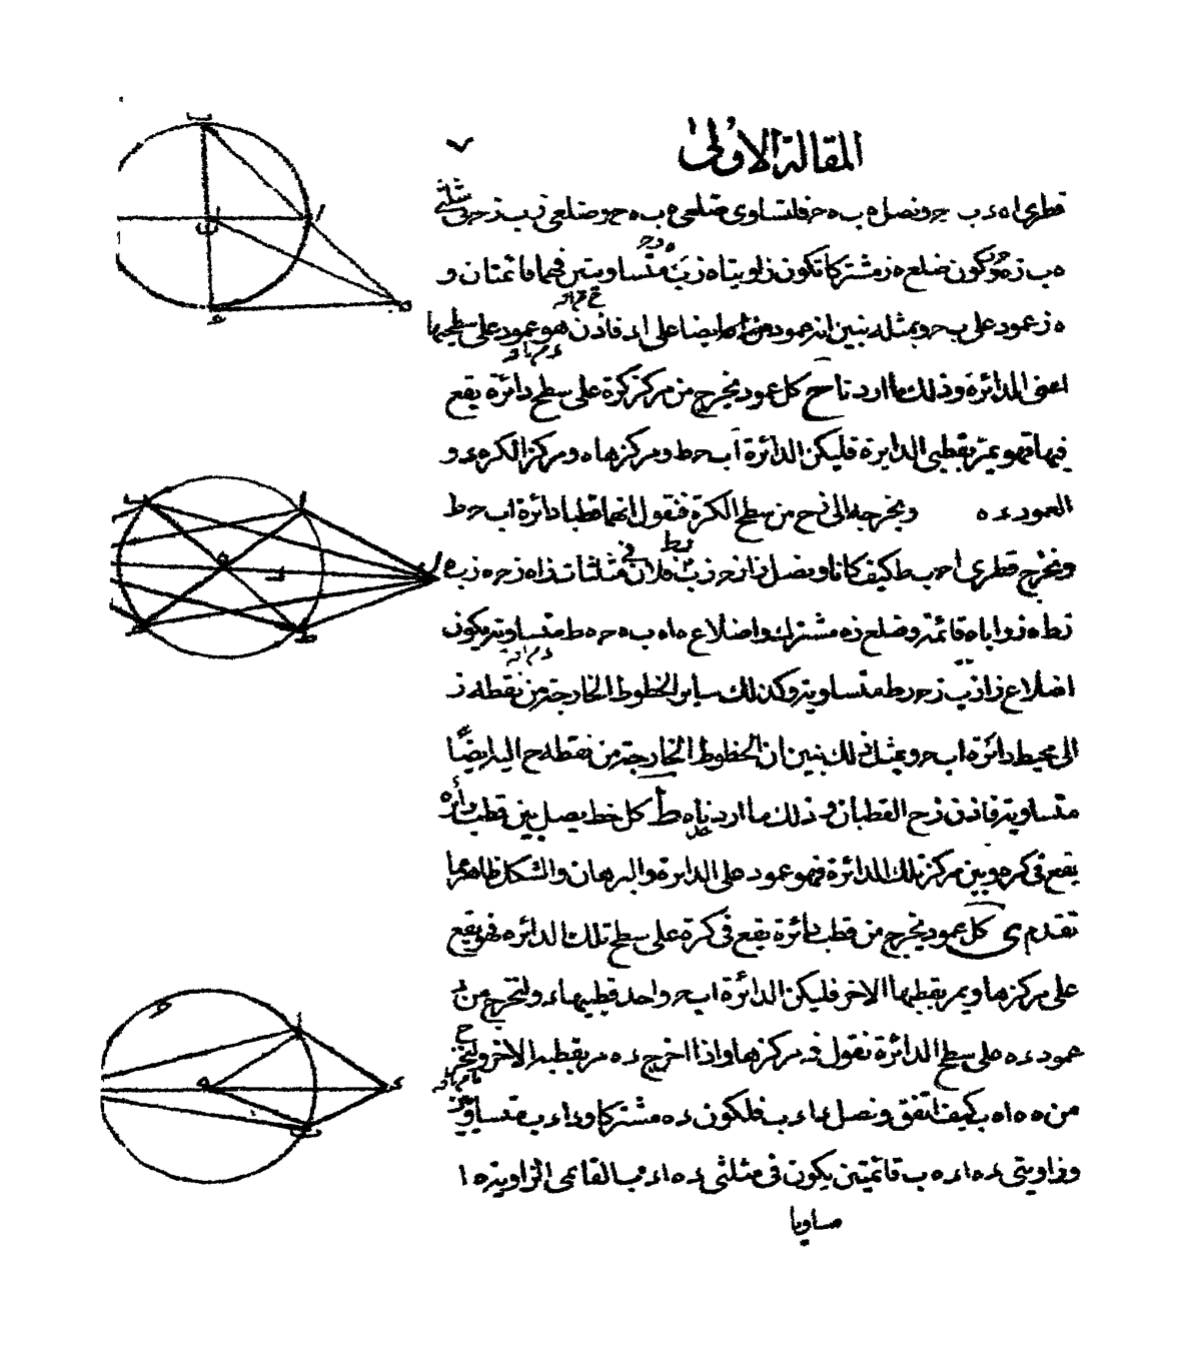 المقالة الاولى
٧
قطرى اه ء ب ج ونصل ه ب ه ج فلتساوى ضلعى ه ب ه ج وضلعى ز ب ز ج فى مثلثى
ه ب ز ه ج ز وكون ضلع ه ز مشتركا تكون زاويتا ه ز ب ه ز ج متساويتين فهما قائمتان و
ه ز عمود على ب ج وبمثله نبين انه عمود ايضا على ا ء فاذن هو عمود على سطحيها
اعنى الدائرة وذلك ما اردناه ح كل عمود يخرج من مركز كرة على سطح دائرة يقع
فيها فهو يمر بقطبى الدايرة فليكن الدائرة ا ب ج ط ومركزها ه ومركز الكرة ء و
العمود ء ه ويخرجه الى ز ح من سطح الكرة فنقول انهما قطبا دائرة ا ب ج ط
ونخرج قطرى ا ج ب ط كيف كانا ونصل ز ا ز ج ز ب ز ط فلان فى مثلثات ز ا ه ز ج ه ز ب ه
ز ط ه زوايا ه قائمة وضلع ز ه مشترك واضلاع ه ا ه ب ه ج ه ط متساوية يكون
اضلاع ز ا ز ب ز ج ز ط متساوية وكذلك ساير الخطوط الخارجة من نقطة ز
الى محيط دائرة ا ب ج وبمثل ذلك نبين ان الخطوط الخارجة من نقطة ح اليه ايضًا
متساوية فاذن ز ح القطبان وذلك ما اردناه ط كل خط يصل بين قطب دائرة
يقع فى كره وبين مركز تلك الدائرة فهو عمود على الدايرة والبرهان والشكل ظاهر مما
تقدم ى كل عمود يخرج من قطب دائرة يقع فى كرة على سطح تلك الدائره فهو يقع
على مركزها ويمر بقطبها الاخر فليكن الدائرة ا ب ج واحد قطبيها ء ولنخرج من ء
عمود ء ه على سطح الدائرة نقول فه مركزها واذا اخرج ء ه مر بقطبه الاخر ولنخرج
من ه ه ا ه ب كيف اتفق ونصل ء ا ء ب فلكون ء ه مشتركا و ء ا ء ب متساويين
وزاويتى ء ه ا ء ه ب قائمتين يكون فى مثلثى ء ه ا ء ه ب القائمى الزاوية ه ا
مساويا